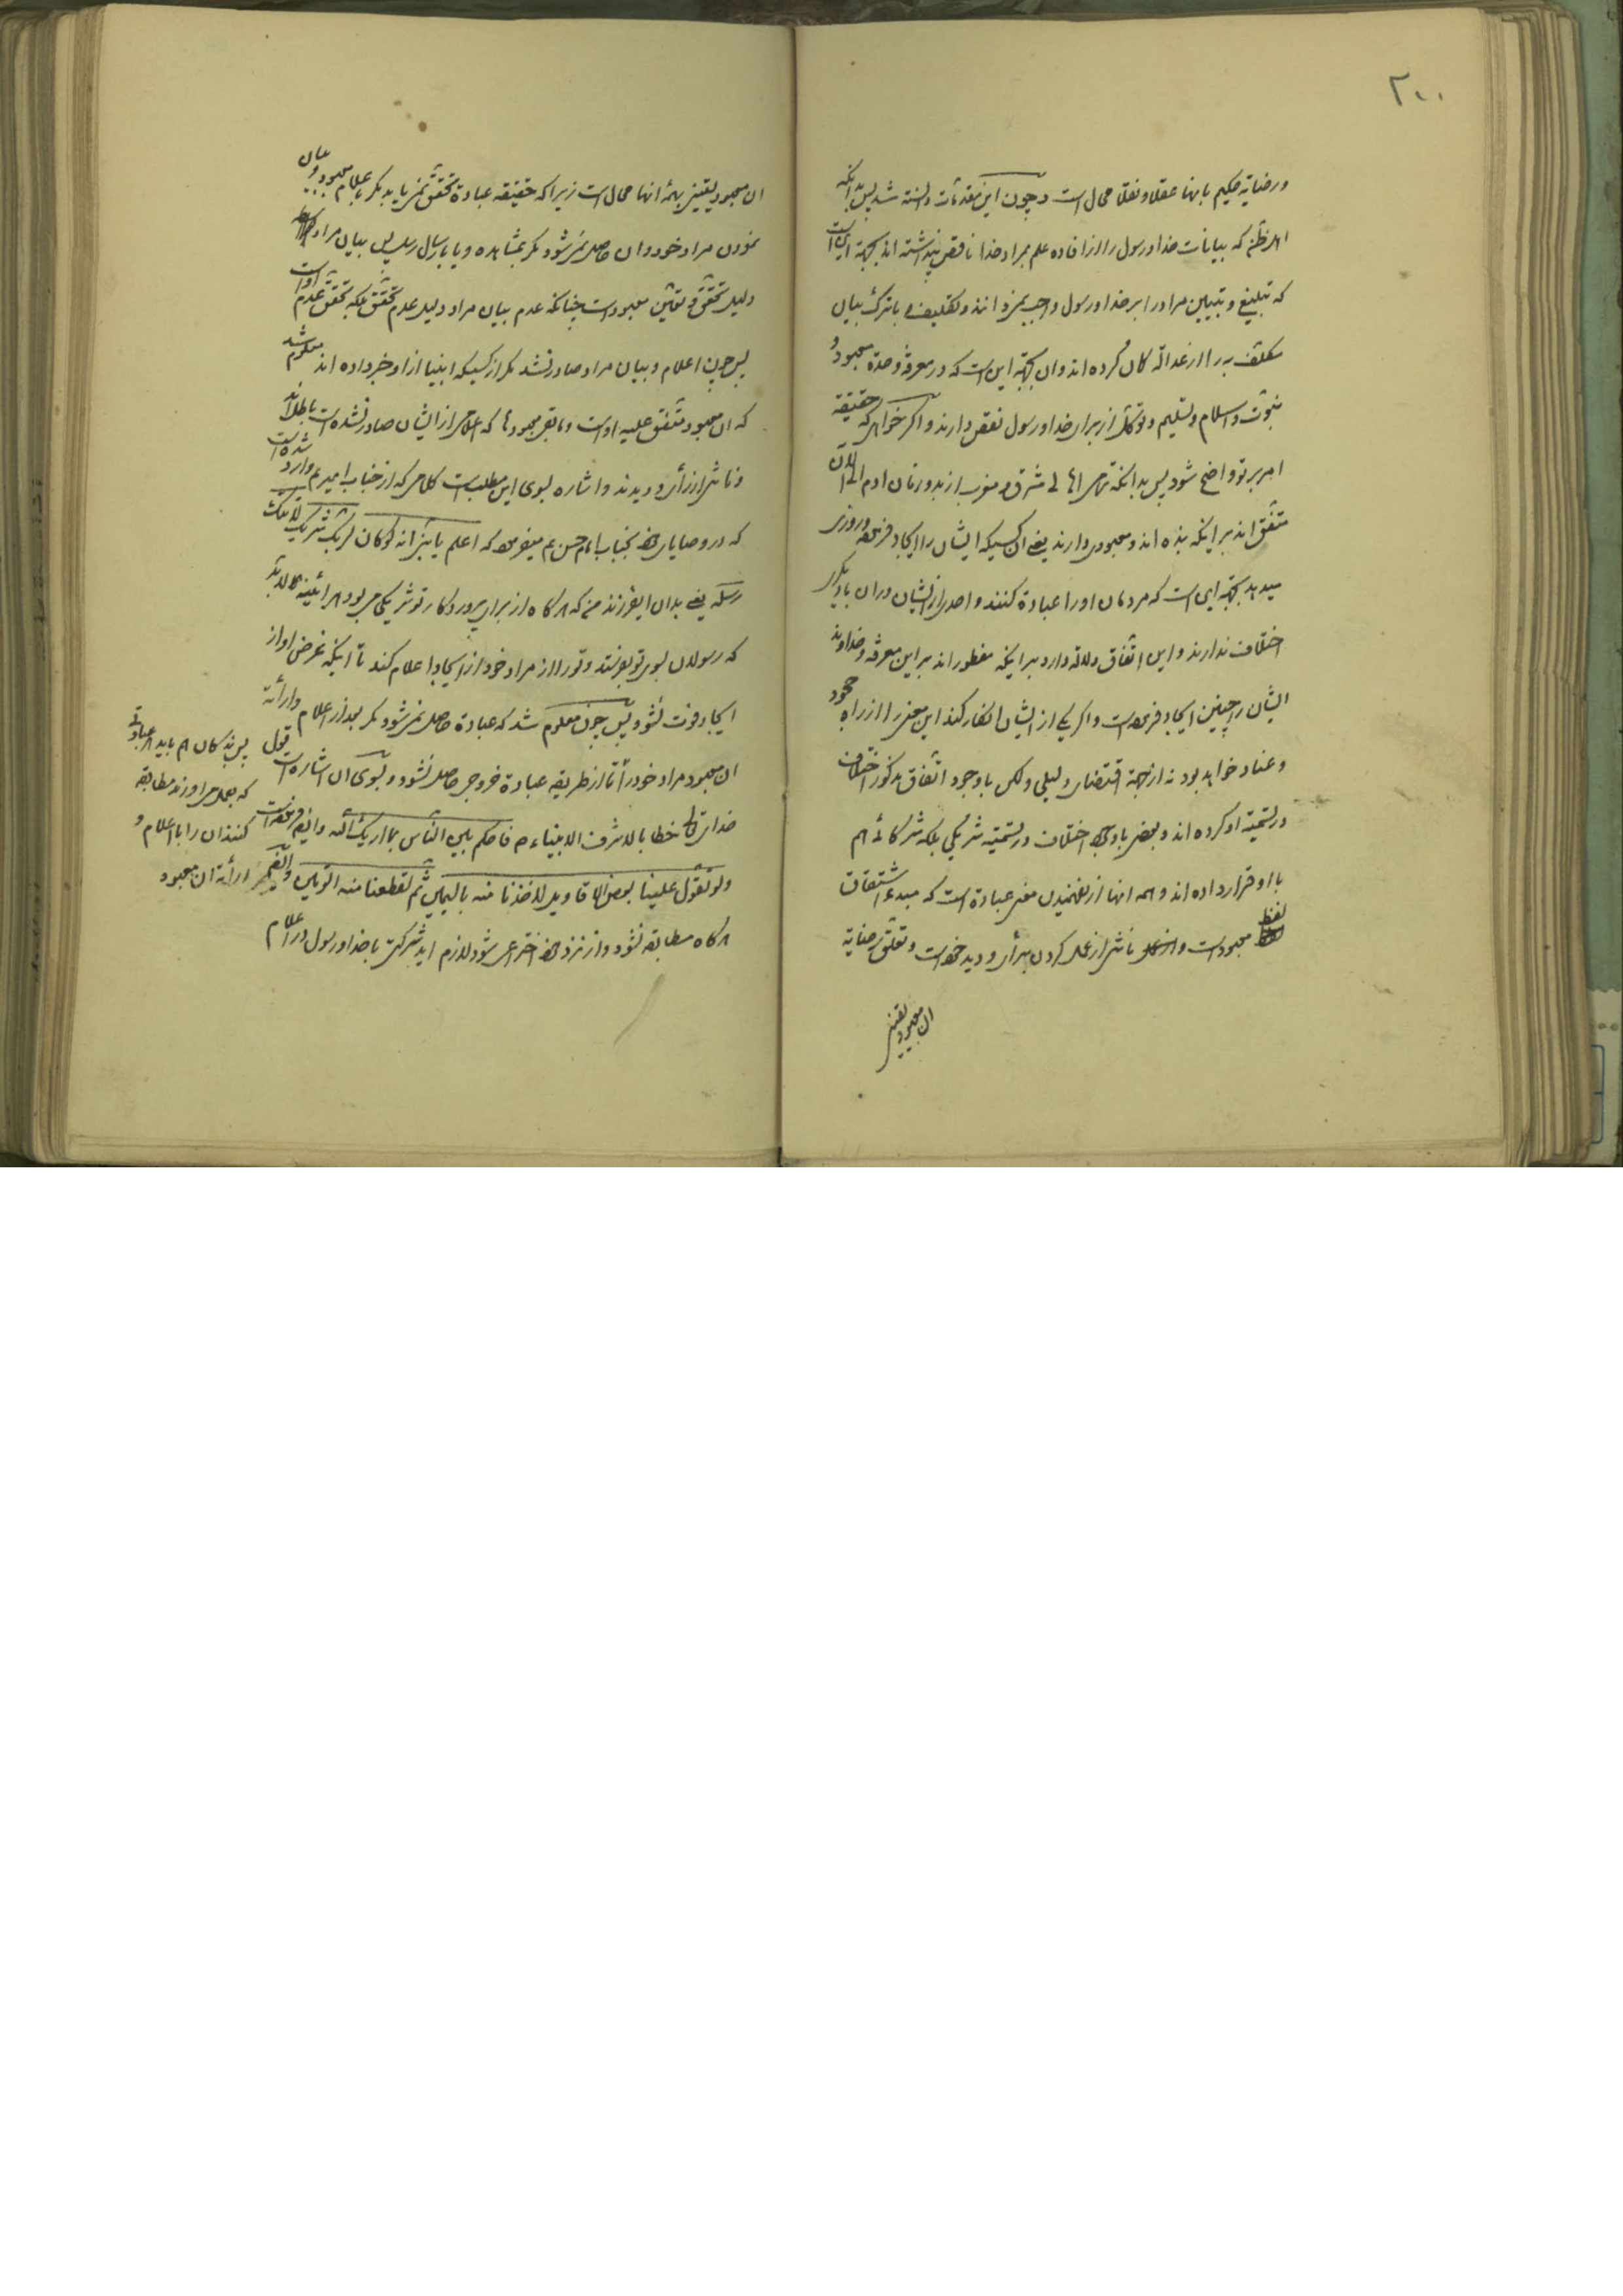 ۲۰۰
ورضایة حکیم بانها عقلا ونقلا محال است وچون این مقدمات دانسته شد پس بدانکه
اهل ظن که بیانات خدا ورسول را از افاده علم بمراد خدا ناقص پنداشته اند بجهة این است
که تبلیغ وتبیین مراد را بر خدا ورسول واجب نمیدانند وتکلیف با ترک بیان
مکلف به را از عدالة کان کرده اند وان بجهة این است که در معرفة وحدة معبود و
نبوت واسلام وتسلیم وتوکل از برای خدا ورسول نقص دارند واکر خواهی که حقیقة
امر بر تو واضح شود پس بدانکه تمام اهالی مشرق ومغرب از بدو زمان ادم الی الان
متفق اند بر اینکه بنده اند ومعبودی دارند یعنی ان کسیکه ایشان را ایجاد فرموده وروزی
میدهد بجهة این است که مردمان او را عبادة کنند واحدی از ایشان در ان با دیکری
اختلاف ندارند واین اتفاق دلالة دارد بر اینکه مفطور اند بر این معرفة وخداوند
ایشان را چنین ایجاد فرموده است واکر یکی از ایشان انکار کند این معنی را از راه جحود
وعناد خواهد بود نه از جهة اقتضای دلیلی ولکن با وجود اتفاق مذکور اختلاف
در تسمیة او کرده اند وبعضی با وجود اختلاف در تسمیة شریکی بلکه شرکائی هم
با او قرار داده اند وهمه اینها از نفهمیدن معنی عبادة است که مبدء اشتقاق
لفظ معبود است وناشی از عمل کردن برأی ودید خود است وتعلق رضایة
ان معبود یقینی
ان معبود یقینی بهمه انها محال است زیرا که حقیقة عبادة تحقق نمی یابد مکر باعلام معبود وبیان
نمودن مراد خود وان حاصل نمی شود مکر بمشاهده ویا بارسال رسل پس بیان مراد
دلیل تحقق وتعین معبود است چنانکه عدم بیان مراد دلیل عدم تحقق بلکه تحقق عدم او است
پس چون اعلام وبیان مراد صادر نشد مکر از کسیکه انبیا از او خبر داده اند معلوم شد
که ان معبود متفق علیه او است ومابقی معبودها که اعلامی از ایشان صادر نشده است باطل اند
وناشی از رأی ودیدند واشاره بسوی این مطلب است کلامی که از جناب امیر ع وارد شده است
که در وصایای خود بجناب امام حسن ع میفرموده که اعلم یا بنی انه لو کان لربک شریک لاتتک
رسله یعنی بدان ایفرزند من که هرکاه از برای پروردکار تو شریکی می بود هر اینه لابد
که رسولان بسوی تو بفرستد وتو را از مراد خود از ایجاد اعلام کند تا اینکه غرض او از
ایجاد فوت نشود پس چون معلوم شد که عبادة حاصل نمی شود مکر بعد از اعلام وارائه
ان معبود مراد خود را تا از طریقه عبادة خروجی حاصل نشود وبسوی ان اشاره است قول
خدای تعالی خطابا لاشرف الانبیاء ص فاحکم بین الناس بما اریک الله وایضا فرموده است
ولو تقول علینا بعض الاقاویل لاخذنا منه بالیمین ثم لقطعنا منه الوتین
هرکاه مطابقه نشود واز نزد خود اختراعی شود لازم اید شرکة با خدا ورسول در اعلام
پس بندکان هم باید هر عبادتی
که بعمل می اورند مطابقه
کنند ان را با اعلام و
ارائه ان معبود